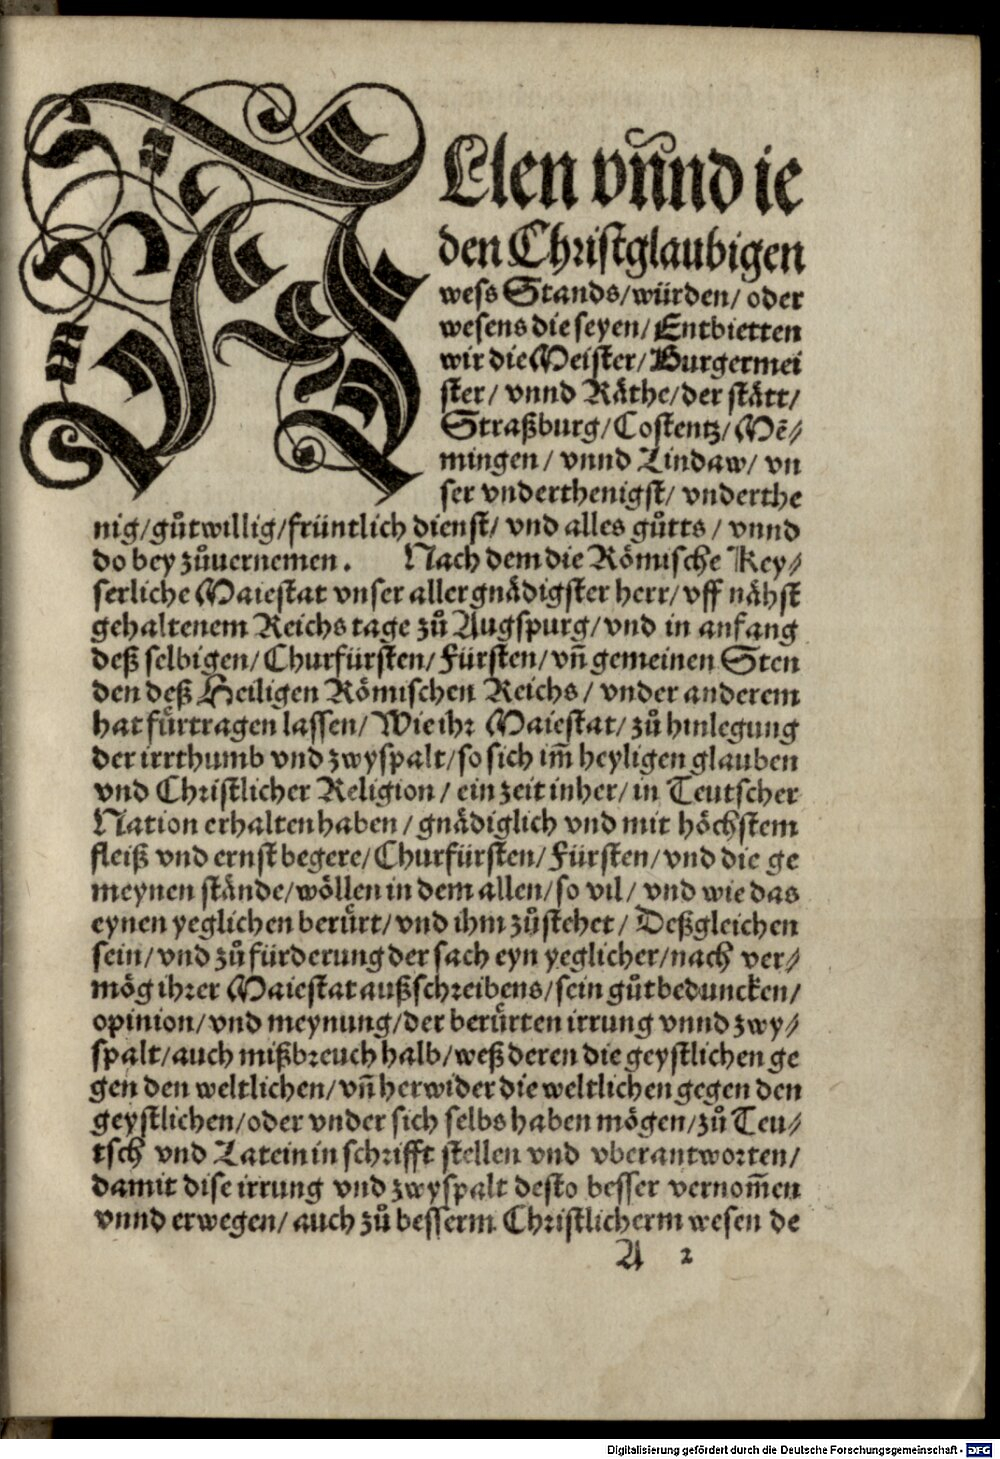 ALlen vn̄nd ie
den Christglaubigen
wess Stands/würden/oder
wesens die seyen/Entbietten
wir die Meister/Burgermei
ster/vnnd Räthe/der stätt/
Straßburg/Costentz/Mē⸗
mingen/vnnd Lindaw/vn
ser vnderthenigst/vnderthe
nig/gůtwillig/früntlich dienst/vnd alles gůtts/vnnd
do bey zůuernemen. Nach dem die Römische Key⸗
serliche Maiestat vnser aller gnädigster herr/vff nähst
gehaltenem Reichs tage zů Augspurg/vnd in anfang
deß selbigen/Churfürsten/Fürsten/vn̄ gemeinen Sten
den deß Heiligen Römischen Reichs/vnder anderem
hat fürtragen lassen/Wie ihr Maiestat/zů hinlegung
der irrthumb vnd zwyspalt/so sich im̄ heyligen glauben
vnd Christlicher Religion/ein zeit inher/in Teutscher
Nation erhalten haben/gnädiglich vnd mit höchstem
fleiß vnd ernst begere/Churfürsten/Fürsten/vnd die ge
meynen stände/wöllen in dem allen/so vil/vnd wie das
eynen yeglichen berürt/vnd ihm zůstehet/Deßgleichen
sein/vnd zů fürderung der sach eyn yeglicher/nach ver⸗
mög ihrer Maiestat außschreibens/sein gůtbeduncken/
opinion/vnd meynung/der berürten irrung vnnd zwy⸗
spalt/auch mißbreuch halb/weß deren die geystlichen ge
gen den weltlichen/vn̄ herwider die weltlichen gegen den
geystlichen/oder vnder sich selbs haben mögen/zů Teu⸗
tsch vnd Latein in schrifft stellen vnd vberantworten/
damit dise irrung vnd zwyspalt desto besser vernom̄en
vnnd erwegen/auch zů besserm Christlicherm wesen de
A 2
Digitalisierung gefördert durch die Deutsche Forschungsgemeinschaft - DFG